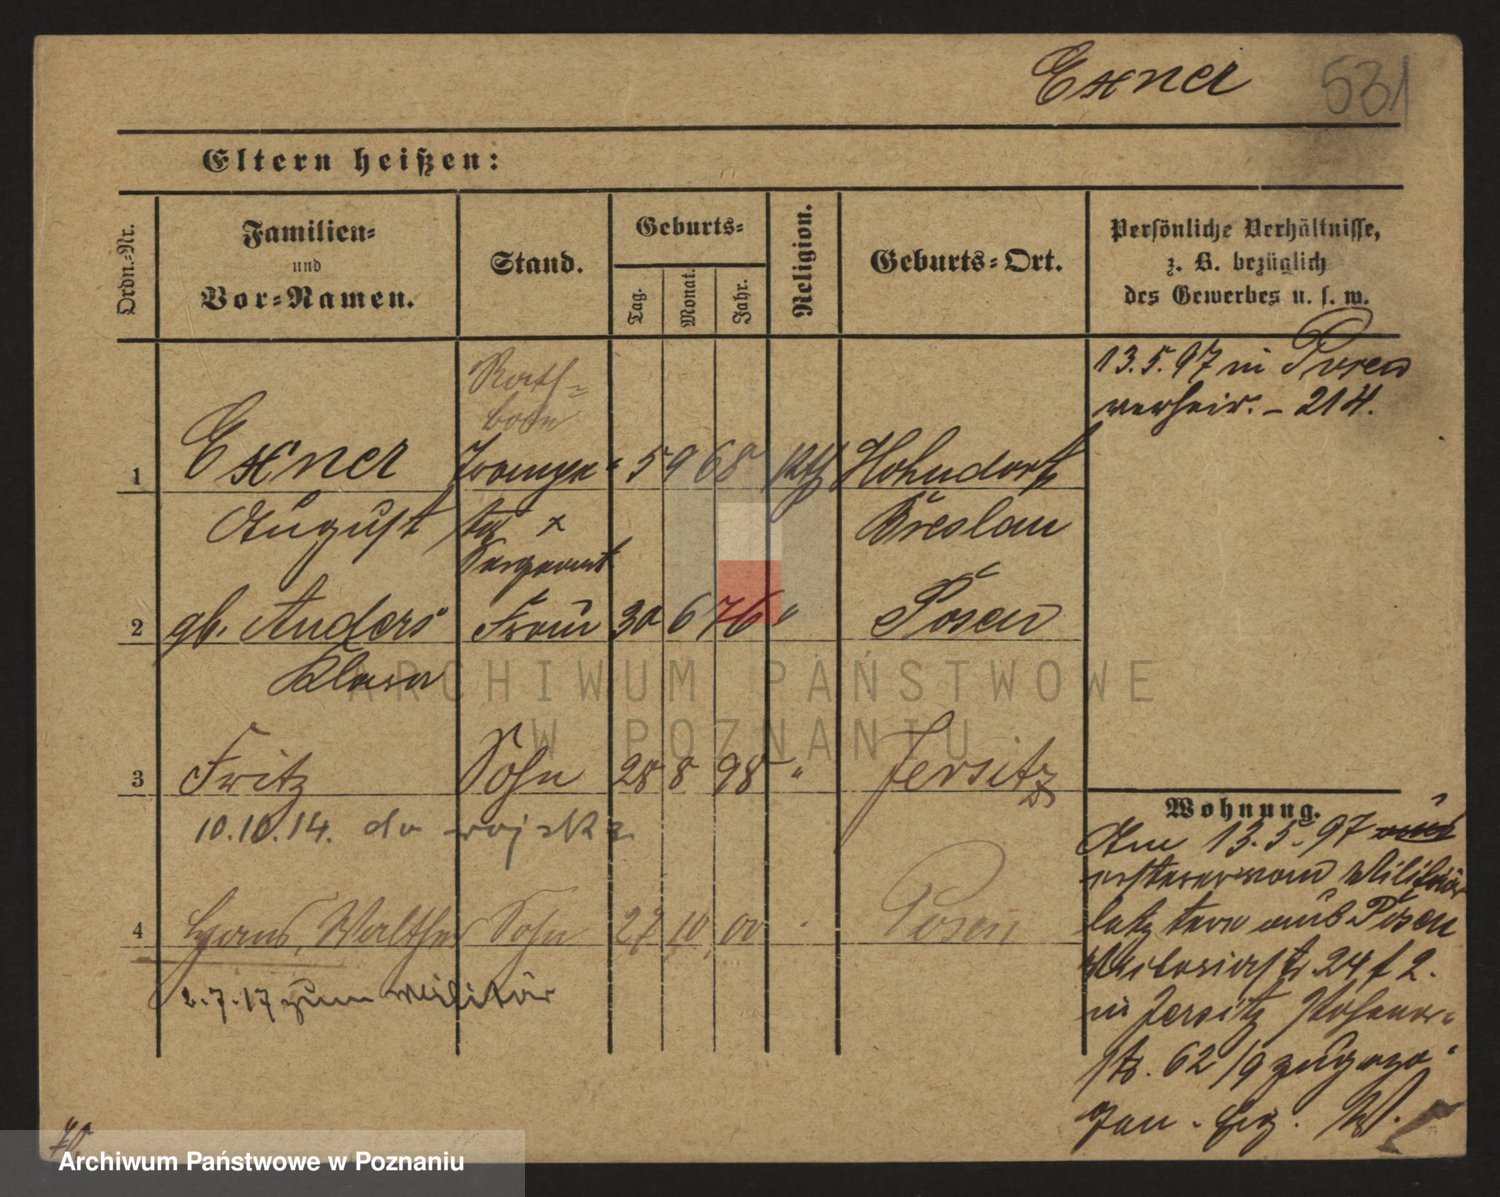 Exner 531
Eltern heißen:
Ordn.-Nr.
Familien-
und
Vor-Namen.
Stand.
Geburts-
Tag.
Monat.
Jahr.
Religion.
Geburts-Ort.
Persönliche Verhältnisse,
z. B. bezüglich
des Gewerbes u. s. w.
13.5.97 in Posen
verheir. - 214.
Rath-
1 Exner 5 9 68 kth Hohndorf
August Breslau
Sergeant
2 gb. Anders Frau 30 6 76 " Posen
Klara
3 Fritz Sohn 28 8 98 " Jersitz
10.10.14. do wojska
4 Hans, Walther Sohn 27 10 00 Posen
2.7.17 zum Militär
Wohnung.
Am 13.5.97
ersterer vom Militär
letztere aus Posen
Victoriastr. 24 f 2.
in Jersitz
str. 62/9 zugezo-
gen. W.
ARCHIWUM PAŃSTWOWE
W POZNANIU
Archiwum Państwowe w Poznaniu